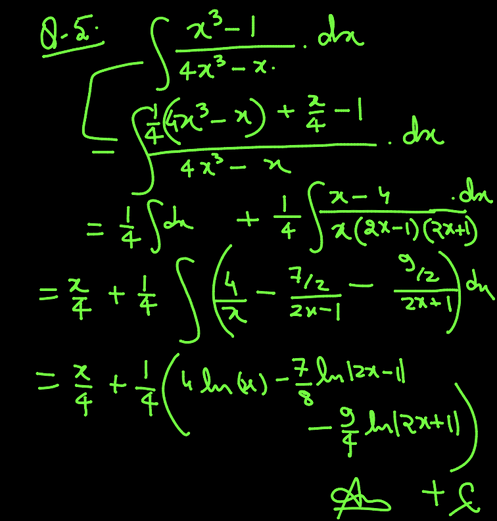 Q-5. ∫ (x³ - 1)/(4x³ - x) . dx
= ∫ (1/4(4x³ - x) + x/4 - 1)/(4x³ - x) . dx
= 1/4 ∫ dx + 1/4 ∫ (x - 4)/(x(2x-1)(2x+1)) . dx
= x/4 + 1/4 ∫ (4/x - (7/2)/(2x-1) - (9/2)/(2x+1)) dx
= x/4 + 1/4 (4 ln(x) - 7/8 ln|2x-1|
- 9/4 ln|2x+1|)
Ans + C